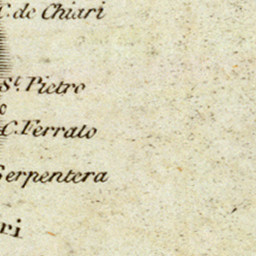 C. de Chiari
St. Pietro
C. Ferrato
Serpentera
ri